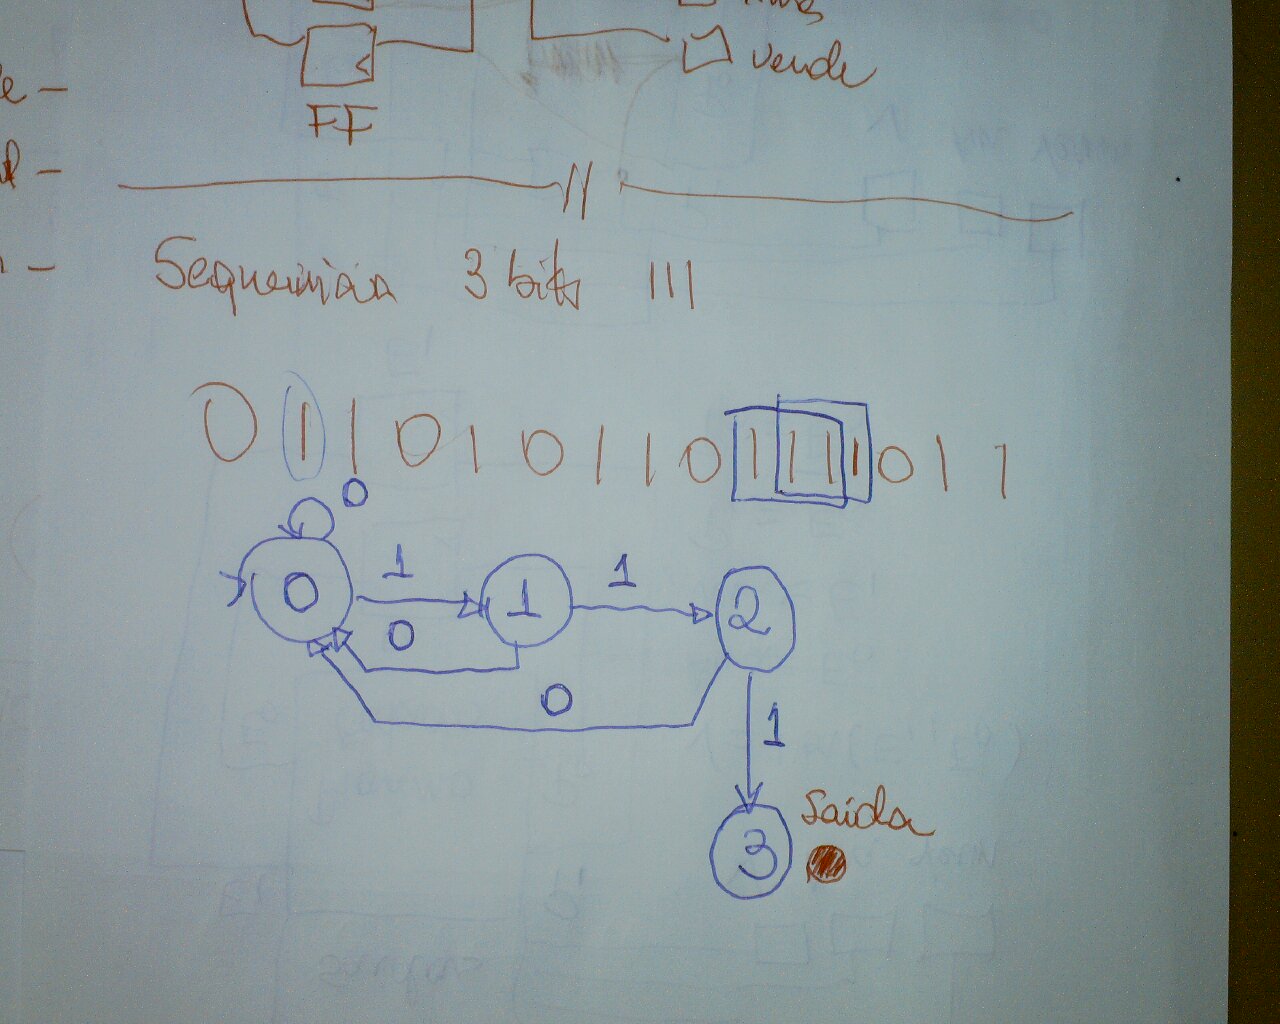 vende
FF
Sequência 3 bits 111
0 1 1 0 1 0 1 1 0 1 1 1 1 0 1 1
0
0 1 1 1 2
0
0
1
3 Saída